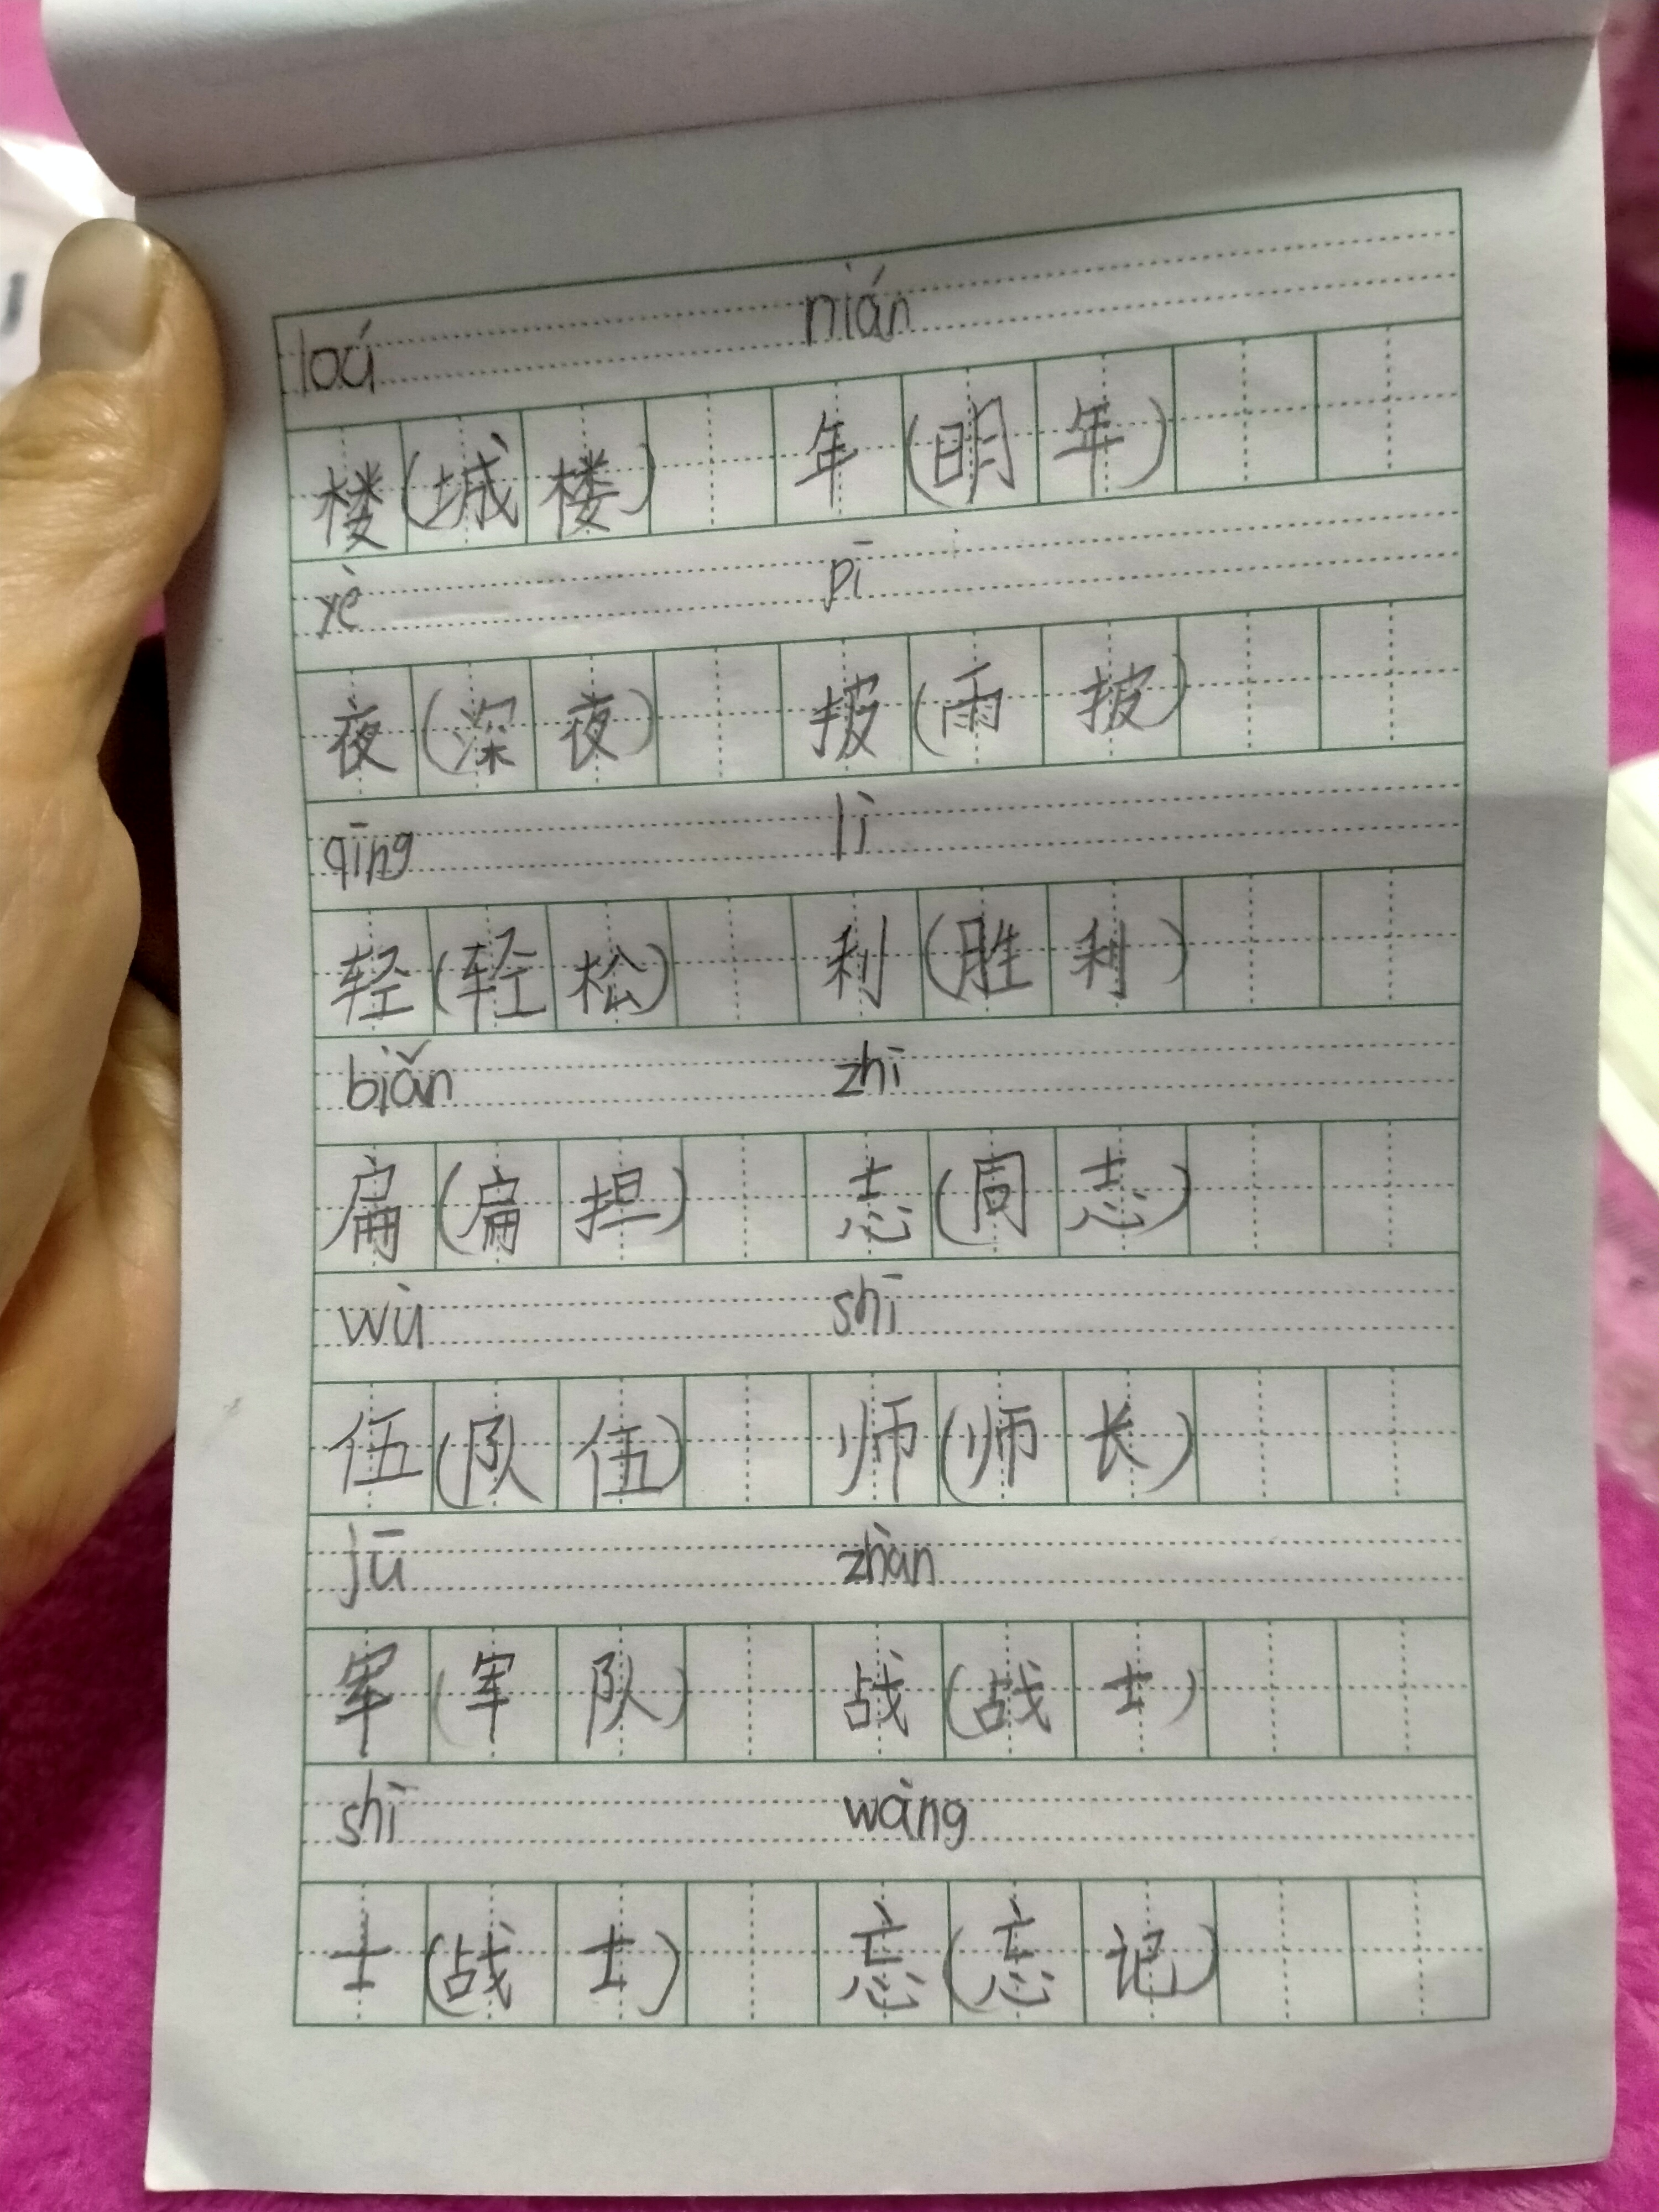 loú nián
楼(城楼) 年(明年)
yè pī
夜(深夜) 披(雨披)
qīng lì
轻(轻松) 利(胜利)
biǎn zhì
扁(扁担) 志(同志)
wù shī
伍(队伍) 师(师长)
jū zhàn
军(军队) 战(战士)
shì wàng
士(战士) 忘(忘记)